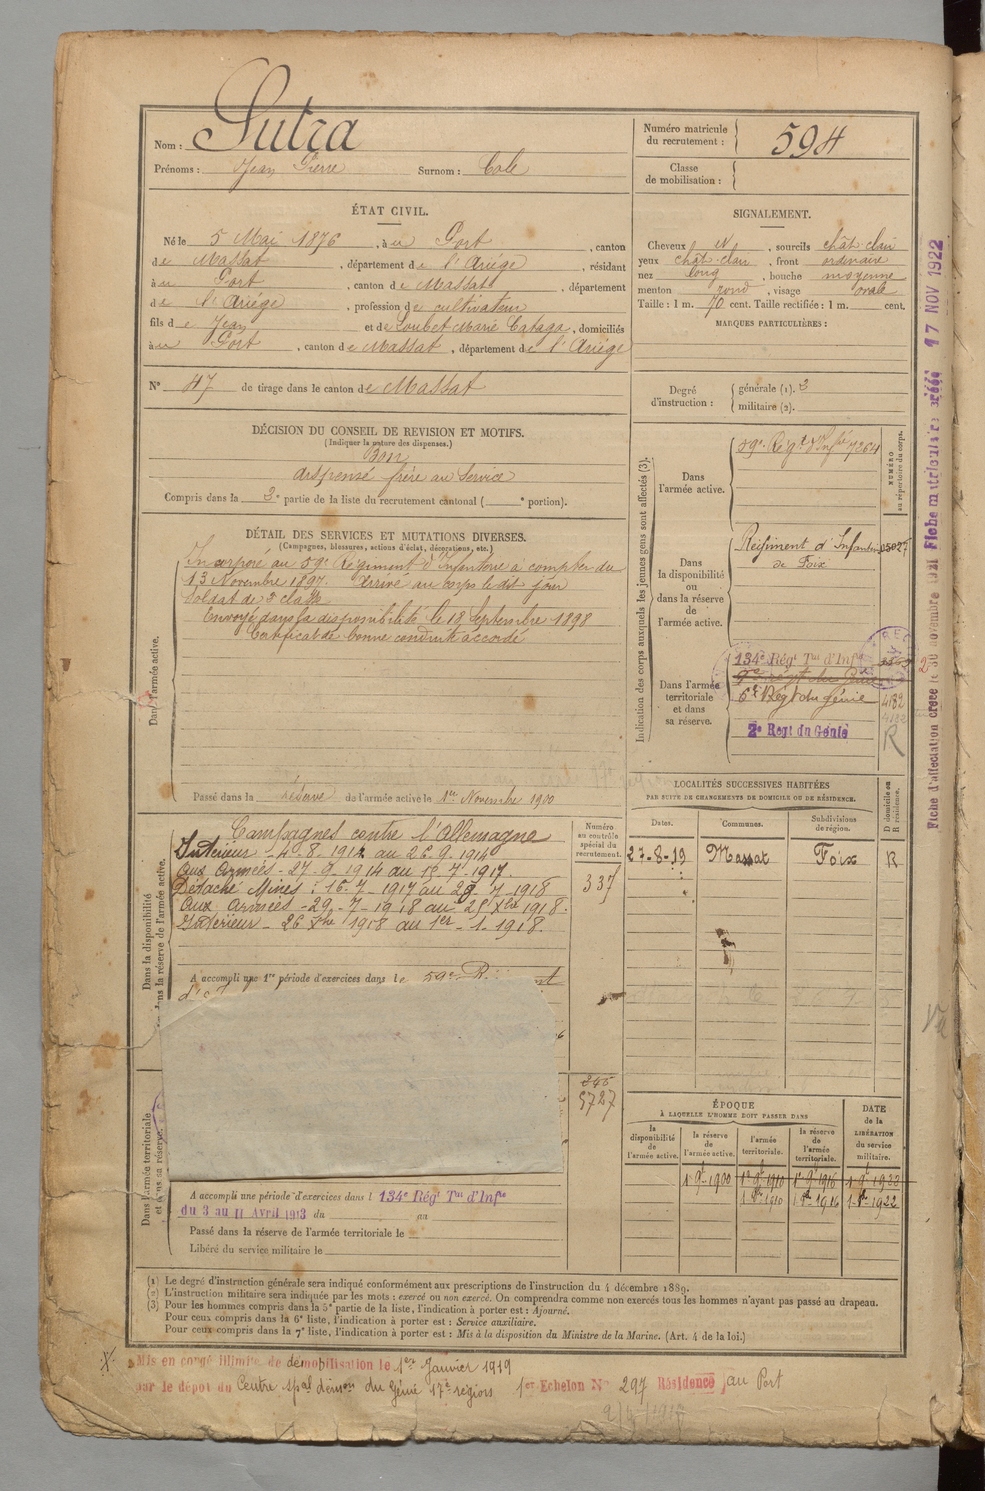 Nom : Sutra
Prénoms : Jean Pierre Surnom : Cole
Numéro matricule du recrutement : 594
Classe de mobilisation :
ÉTAT CIVIL.
Né le 5 Mai 1876, à u Port, canton
de Massat, département de l'Ariège, résidant
à u Port, canton de Massat, département
de l'Ariège, profession de cultivateur
fils de Jean et de Loubet Marie, domiciliés
à u Port, canton de Massat, département de l'Ariège
N° 47 de tirage dans le canton de Massat
SIGNALEMENT.
Cheveux N, sourcils chât-clair
yeux chât-clair, front ordinaire
nez long, bouche moyenne
menton rond, visage ovale
Taille : 1 m. 70 cent. Taille rectifiée : 1 m. cent.
MARQUES PARTICULIÈRES :
Degré d'instruction : générale (1). 3
militaire (2).
DÉCISION DU CONSEIL DE REVISION ET MOTIFS.
(Indiquer la nature des dispenses.)
Bon
dispensé frère au Service
Compris dans la 2e partie de la liste du recrutement cantonal ( e portion).
DÉTAIL DES SERVICES ET MUTATIONS DIVERSES.
(Campagnes, blessures, actions d'éclat, décorations, etc.)
Dans l'armée active.
Incorporé au 59e Régiment d'Infanterie à compter du
13 Novembre 1897. Arrivé au corps le dit jour
Soldat de 2e classe
Envoyé dans la disponibilité le 18 Septembre 1898
Certificat de bonne conduite accordé
Passé dans la réserve de l'armée active le 1er Novembre 1900
Indication des corps auxquels les jeunes gens sont affectés (3).
NUMÉRO au répertoire du corps.
Dans l'armée active.
59e Régt d'Infie 7264
Dans la disponibilité ou dans la réserve de l'armée active.
Régiment d'Infanterie 05027
de Foix
Dans l'armée territoriale et dans sa réserve.
134e Régt Tal d'Infie
6e Régt du génie 4182
2e Regt du Génie
R
Fiche d'affectation créée le 30 novembre 1921 Fiche matriculaire créée 17 NOV 1922
Dans la disponibilité
dans la réserve de l'armée active.
Campagnes contre l'Allemagne
Intérieur - 4-8-1914 au 26-9-1914
Aux Armées - 27-9-1914 au 15-7-1917.
Détaché Mines : 16-7-1917 au 28-7-1918
Aux Armées - 29-7-1918 au 25 Xbre 1918.
Intérieur - 26 Xbre 1918 au 1er-1-1918.
A accompli une 1re période d'exercices dans le 59e R
Numéro au contrôle spécial du recrutement.
337
5727
LOCALITÉS SUCCESSIVES HABITÉES
PAR SUITE DE CHANGEMENTS DE DOMICILE OU DE RÉSIDENCE.
Dates. Communes. Subdivisions de région. D domicile ou R résidence.
27-8-19 Massat Foix R
ÉPOQUE
À LAQUELLE L'HOMME DOIT PASSER DANS
la disponibilité de l'armée active. la réserve de l'armée active. l'armée territoriale. la réserve de l'armée territoriale.
DATE de la LIBÉRATION du service militaire.
1 9bre 1900 1er 9bre 1910 1er 9bre 1916 1 9bre 1923
1910 1916 1922
Dans l'armée territoriale
et dans sa réserve.
A accompli une période d'exercices dans l 134e Régt Tal d'Infie
du 3 au 11 Avril 1913 du au
Passé dans la réserve de l'armée territoriale le
Libéré du service militaire le
(1) Le degré d'instruction générale sera indiqué conformément aux prescriptions de l'instruction du 4 décembre 1889.
(2) L'instruction militaire sera indiquée par les mots : exercé ou non exercé. On comprendra comme non exercés tous les hommes n'ayant pas passé au drapeau.
(3) Pour les hommes compris dans la 5e partie de la liste, l'indication à porter est : Ajourné.
Pour ceux compris dans la 6e liste, l'indication à porter est : Service auxiliaire.
Pour ceux compris dans la 7e liste, l'indication à porter est : Mis à la disposition du Ministre de la Marine. (Art. 4 de la loi.)
Mis en congé illimité de démobilisation le 1er Janvier 1919
par le dépôt du Centre spal démon du Génie 17e région 1er Echelon N° 297 Résidence au Port